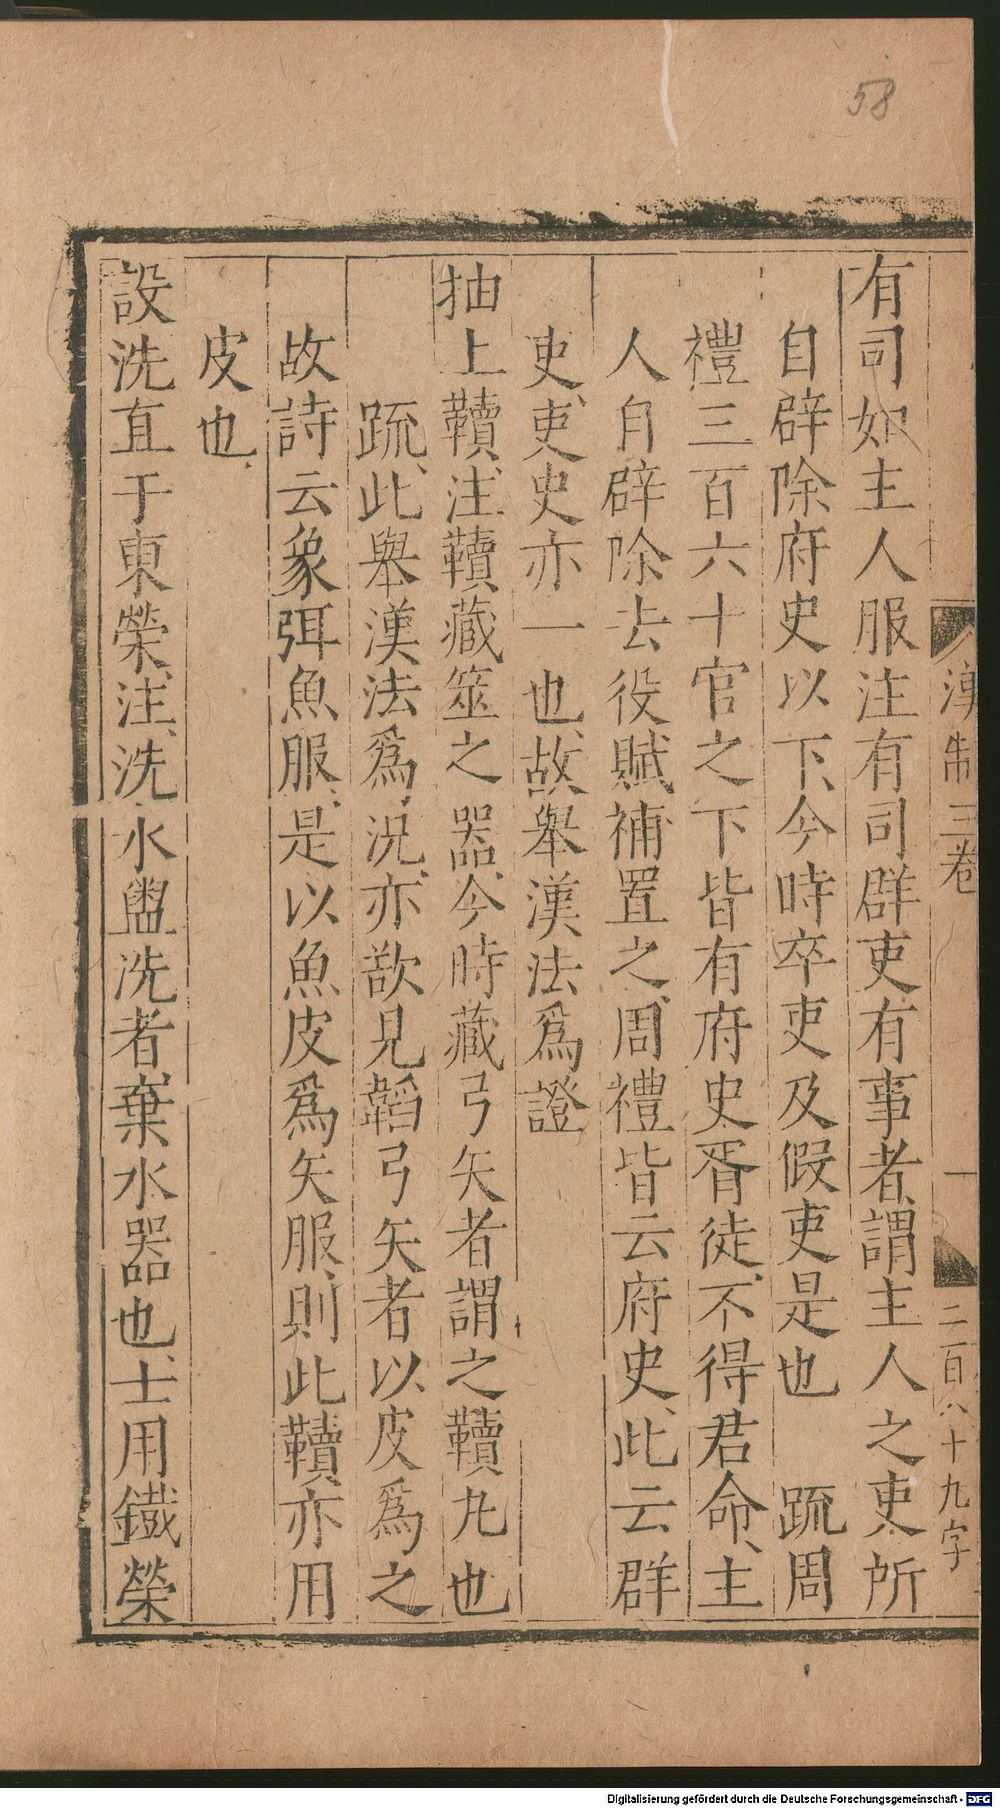 58
漢制三卷
一
二百八十九字
有司如主人服注有司群吏有事者謂主人之吏所
自辟除府史以下、今時卒吏及假吏是也 疏周
禮三百六十官之下皆有府史胥徒、不得君命、主
人自辟除去役賦補置之、周禮皆云府史、此云群
吏、吏史亦一也、故舉漢法爲證
抽上韥、注、韥藏筮之器、今時藏弓矢者謂之韥丸也
疏、此舉漢法爲況、亦欲見韜弓矢者以皮爲之
故詩云象弭魚服、是以魚皮爲矢服、則此韥亦用
皮也、
設洗直于東榮、注、洗、水盥洗者、棄水器也、士用鐵榮
Digitalisierung gefördert durch die Deutsche Forschungsgemeinschaft - DFG